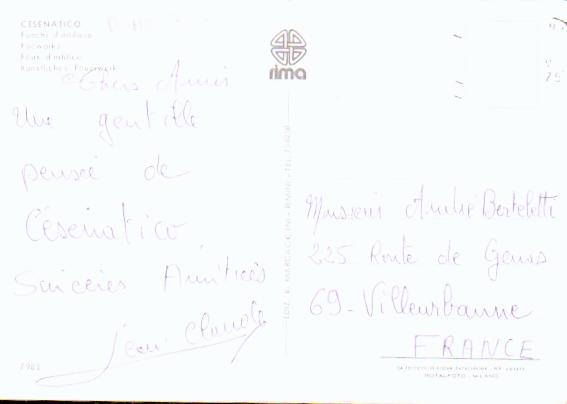 CESENATICO
Fuochi d'artificio
Fireworks
Feux d'artifice
Künstliches Feuerwerk
rima
Chers Amis
Une gentille
pensée de
Césenatico
Sincères Amitiés
Jean Claude
Monsieur André Berteletti
225 Route de Genas
69-Villeurbanne
FRANCE
ROTALFOTO - MILANO